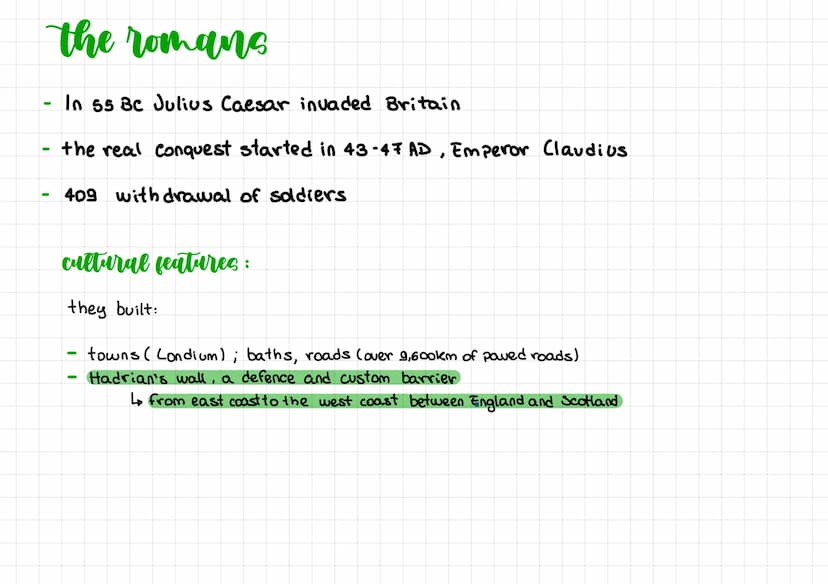 the romans
- In 55 BC Julius Caesar invaded Britain
- the real conquest started in 43-47 AD, Emperor Claudius
- 409 withdrawal of soldiers
cultural features:
they built:
- towns (Londium); baths, roads (over 9,600km of paved roads)
- Hadrian's wall, a defence and custom barrier
↳ from east coast to the west coast between England and Scotland